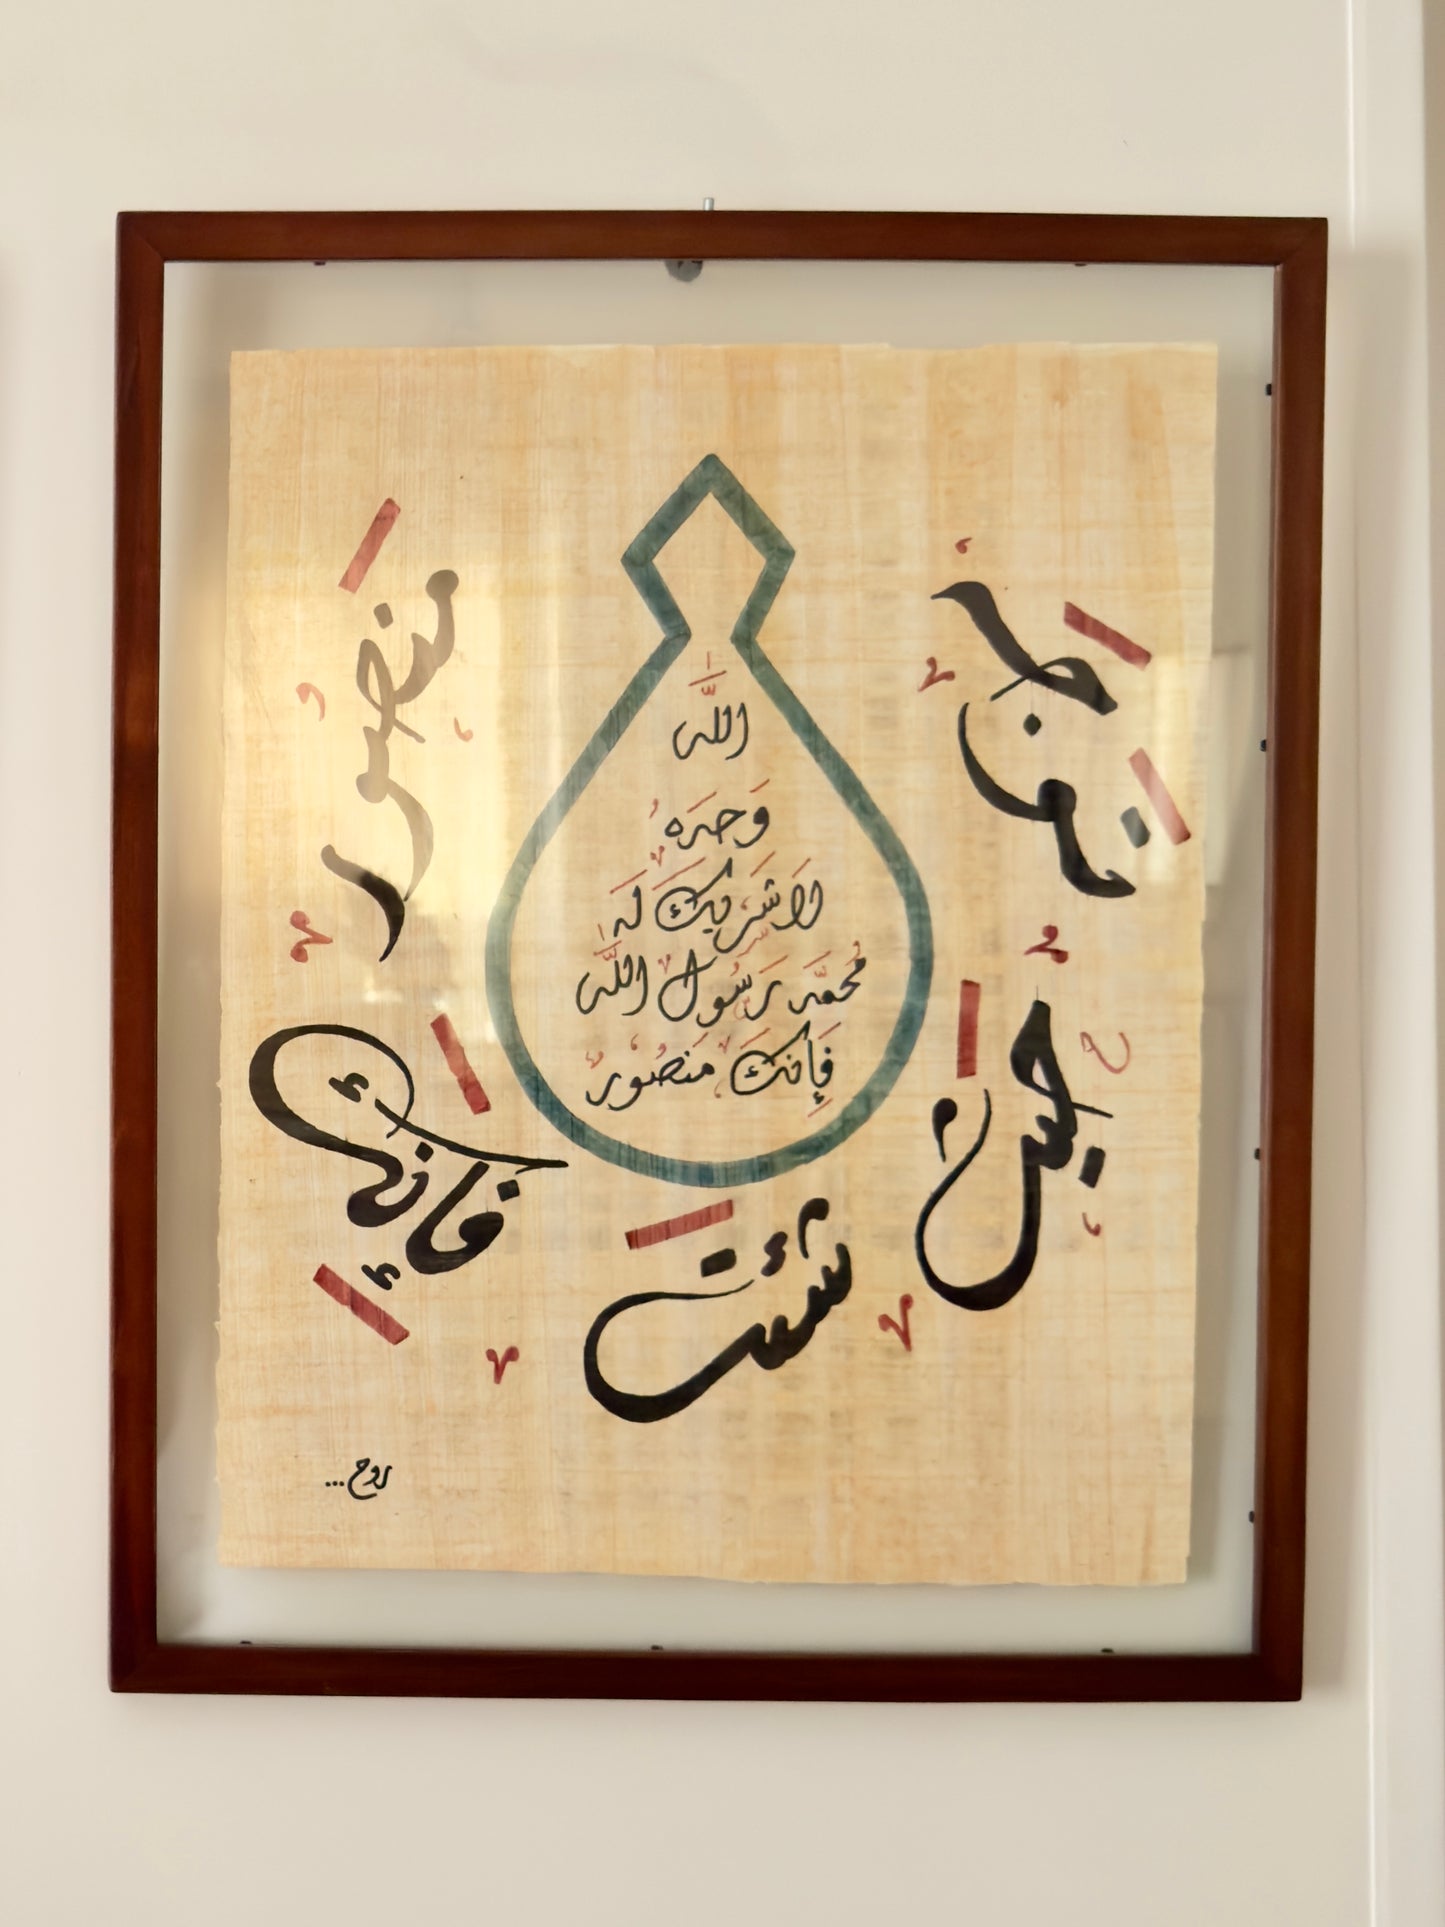 اللَّه
وَحدَهُ
لَا شَرِيكَ لَهُ
مُحمَّد رَسُولُ اللَّه
فَإِنكَ مَنصُورٌ
حَيْثُ
شِئْتَ
فَإِنكَ
مَنصُور
روح...